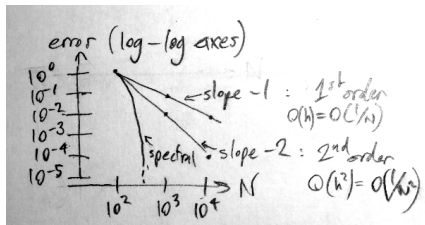 error (log-log axes)
10⁰
10⁻¹
10⁻²
10⁻³
10⁻⁴
10⁻⁵
slope -1 : 1st order
O(h)=O(1/N)
spectral
slope -2 : 2nd order
O(h²)=O(1/N²)
10² 10³ 10⁴ N